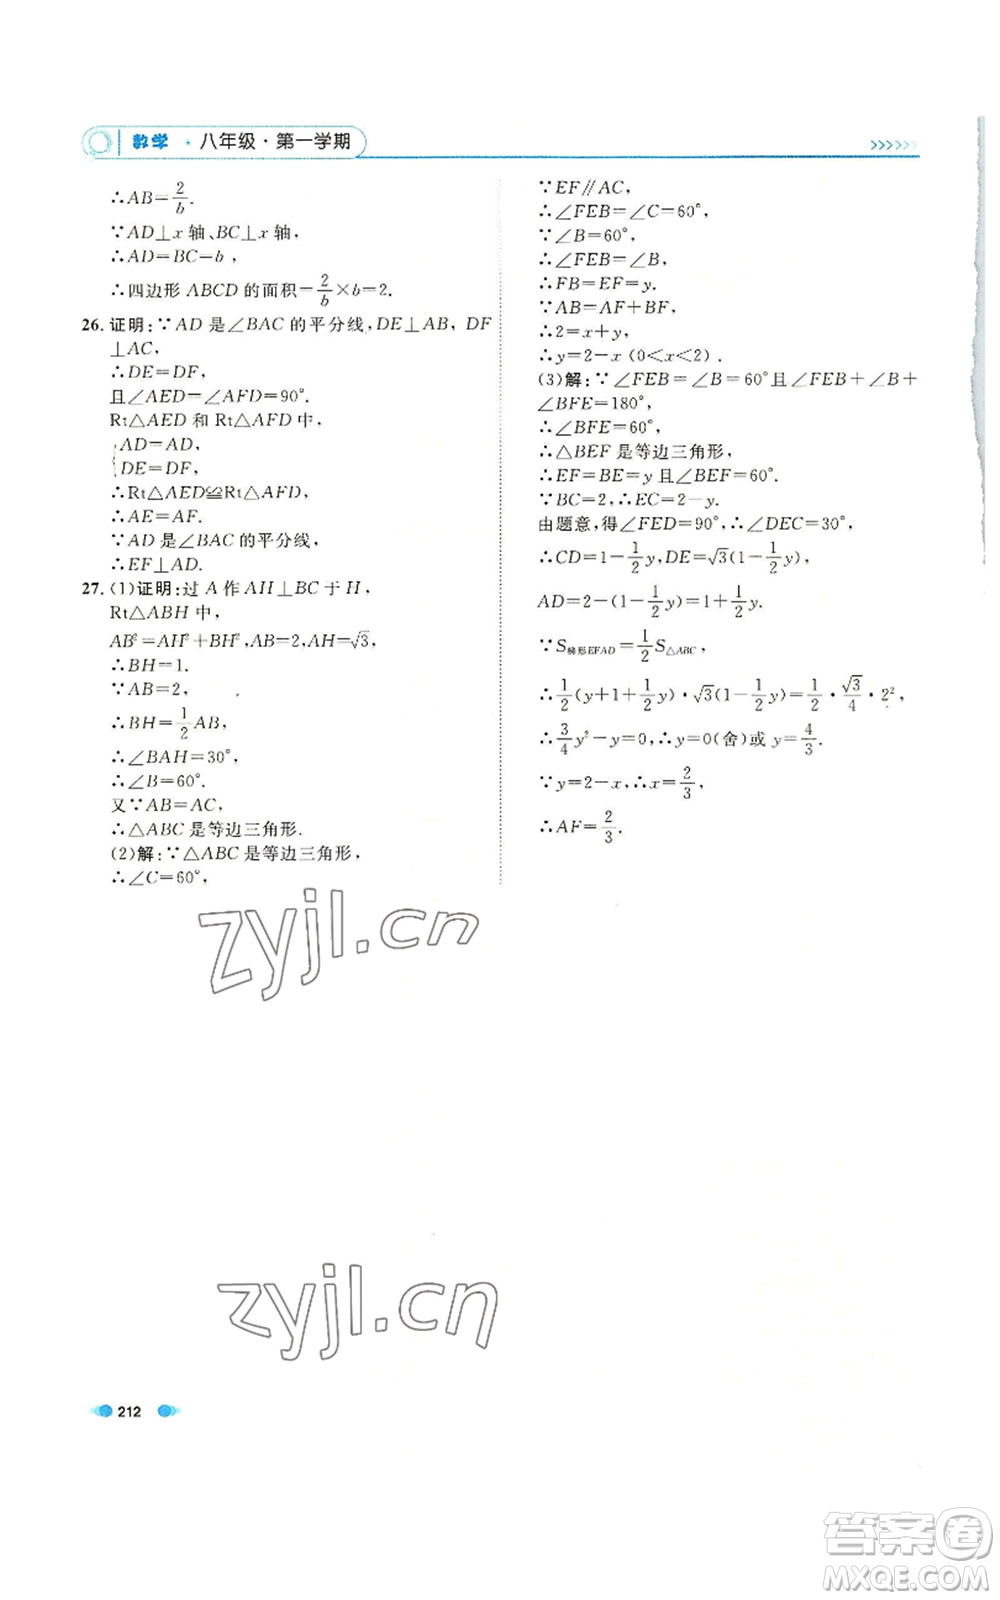 数学 · 八年级 · 第一学期
∴AB=2/b.
∵AD⊥x 轴、BC⊥x 轴,
∴AD=BC=b,
∴四边形 ABCD 的面积=2/b×b=2.
26. 证明:∵AD 是∠BAC 的平分线,DE⊥AB, DF
⊥AC,
∴DE=DF,
且∠AED=∠AFD=90°.
Rt△AED 和 Rt△AFD 中,
{AD=AD,
DE=DF,
∴Rt△AED≌Rt△AFD,
∴AE=AF.
∵AD 是∠BAC 的平分线,
∴EF⊥AD.
27. (1)证明:过 A 作 AH⊥BC 于 H,
Rt△ABH 中,
AB²=AH²+BH²,AB=2,AH=√3,
∴BH=1.
∵AB=2,
∴BH=1/2AB,
∴∠BAH=30°,
∴∠B=60°.
又∵AB=AC,
∴△ABC 是等边三角形.
(2)解:∵△ABC 是等边三角形,
∴∠C=60°,
∵EF∥AC,
∴∠FEB=∠C=60°,
∵∠B=60°,
∴∠FEB=∠B,
∴FB=EF=y.
∵AB=AF+BF,
∴2=x+y,
∴y=2-x (0<x<2).
(3)解:∵∠FEB=∠B=60°且∠FEB+∠B+
∠BFE=180°,
∴∠BFE=60°,
∴△BEF 是等边三角形,
∴EF=BE=y 且∠BEF=60°.
∵BC=2,∴EC=2-y.
由题意,得∠FED=90°,∴∠DEC=30°,
∴CD=1-1/2y,DE=√3(1-1/2y),
AD=2-(1-1/2y)=1+1/2y.
∵S梯形EFAD=1/2S△ABC,
∴1/2(y+1+1/2y)·√3(1-1/2y)=1/2·√3/4·2²,
∴3/4y²-y=0,∴y=0(舍)或 y=4/3.
∵y=2-x,∴x=2/3,
∴AF=2/3.
zyjl.cn
zyjl.cn
212
答案卷
MXQE.COM